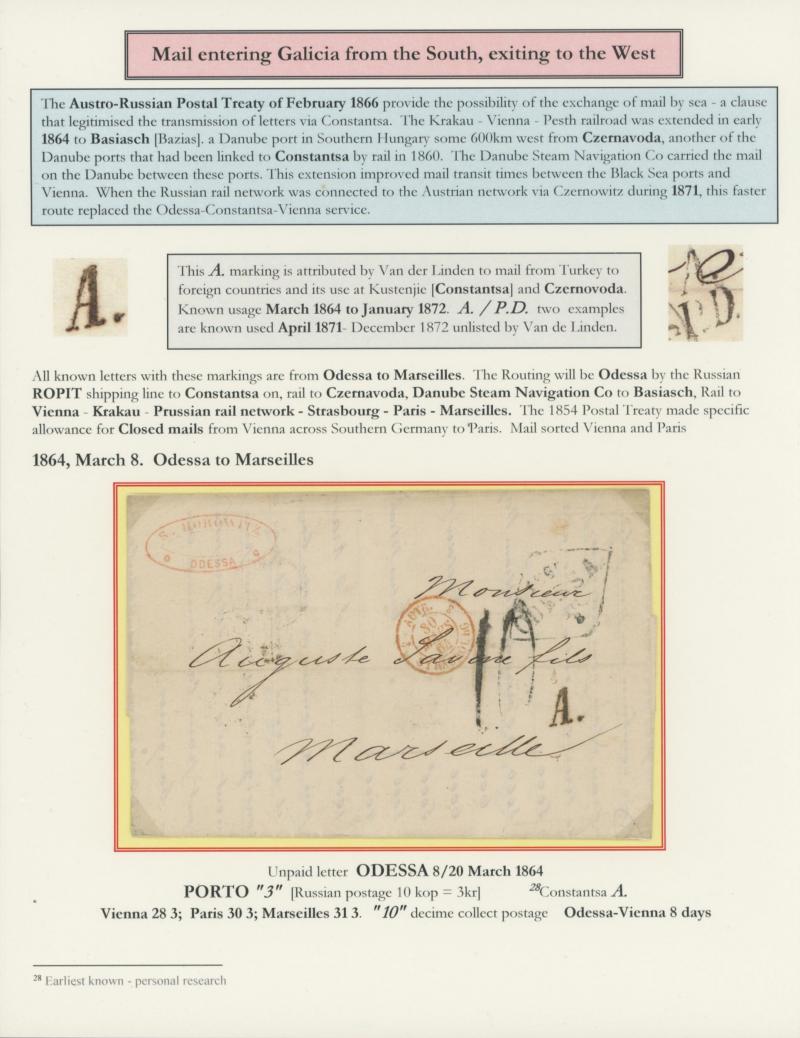 Mail entering Galicia from the South, exiting to the West
The Austro-Russian Postal Treaty of February 1866 provide the possibility of the exchange of mail by sea - a clause
that legitimised the transmission of letters via Constantsa. The Krakau - Vienna - Pesth railroad was extended in early
1864 to Basiasch [Bazias]. a Danube port in Southern Hungary some 600km west from Czernavoda, another of the
Danube ports that had been linked to Constantsa by rail in 1860. The Danube Steam Navigation Co carried the mail
on the Danube between these ports. This extension improved mail transit times between the Black Sea ports and
Vienna. When the Russian rail network was connected to the Austrian network via Czernowitz during 1871, this faster
route replaced the Odessa-Constantsa-Vienna service.
A.
This A. marking is attributed by Van der Linden to mail from Turkey to
foreign countries and its use at Kustenjie [Constantsa] and Czernovoda.
Known usage March 1864 to January 1872. A. / P.D. two examples
are known used April 1871- December 1872 unlisted by Van de Linden.
A.
P.D.
All known letters with these markings are from Odessa to Marseilles. The Routing will be Odessa by the Russian
ROPIT shipping line to Constantsa on, rail to Czernavoda, Danube Steam Navigation Co to Basiasch, Rail to
Vienna - Krakau - Prussian rail network - Strasbourg - Paris - Marseilles. The 1854 Postal Treaty made specific
allowance for Closed mails from Vienna across Southern Germany to Paris. Mail sorted Vienna and Paris
1864, March 8. Odessa to Marseilles
S. HOROWITZ
ODESSA
Monsieur
Auguste fils
10
A.
Marseille
Unpaid letter ODESSA 8/20 March 1864
PORTO "3" [Russian postage 10 kop = 3kr] 28Constantsa A.
Vienna 28 3; Paris 30 3; Marseilles 31 3. "10" decime collect postage Odessa-Vienna 8 days
28 Earliest known - personal research